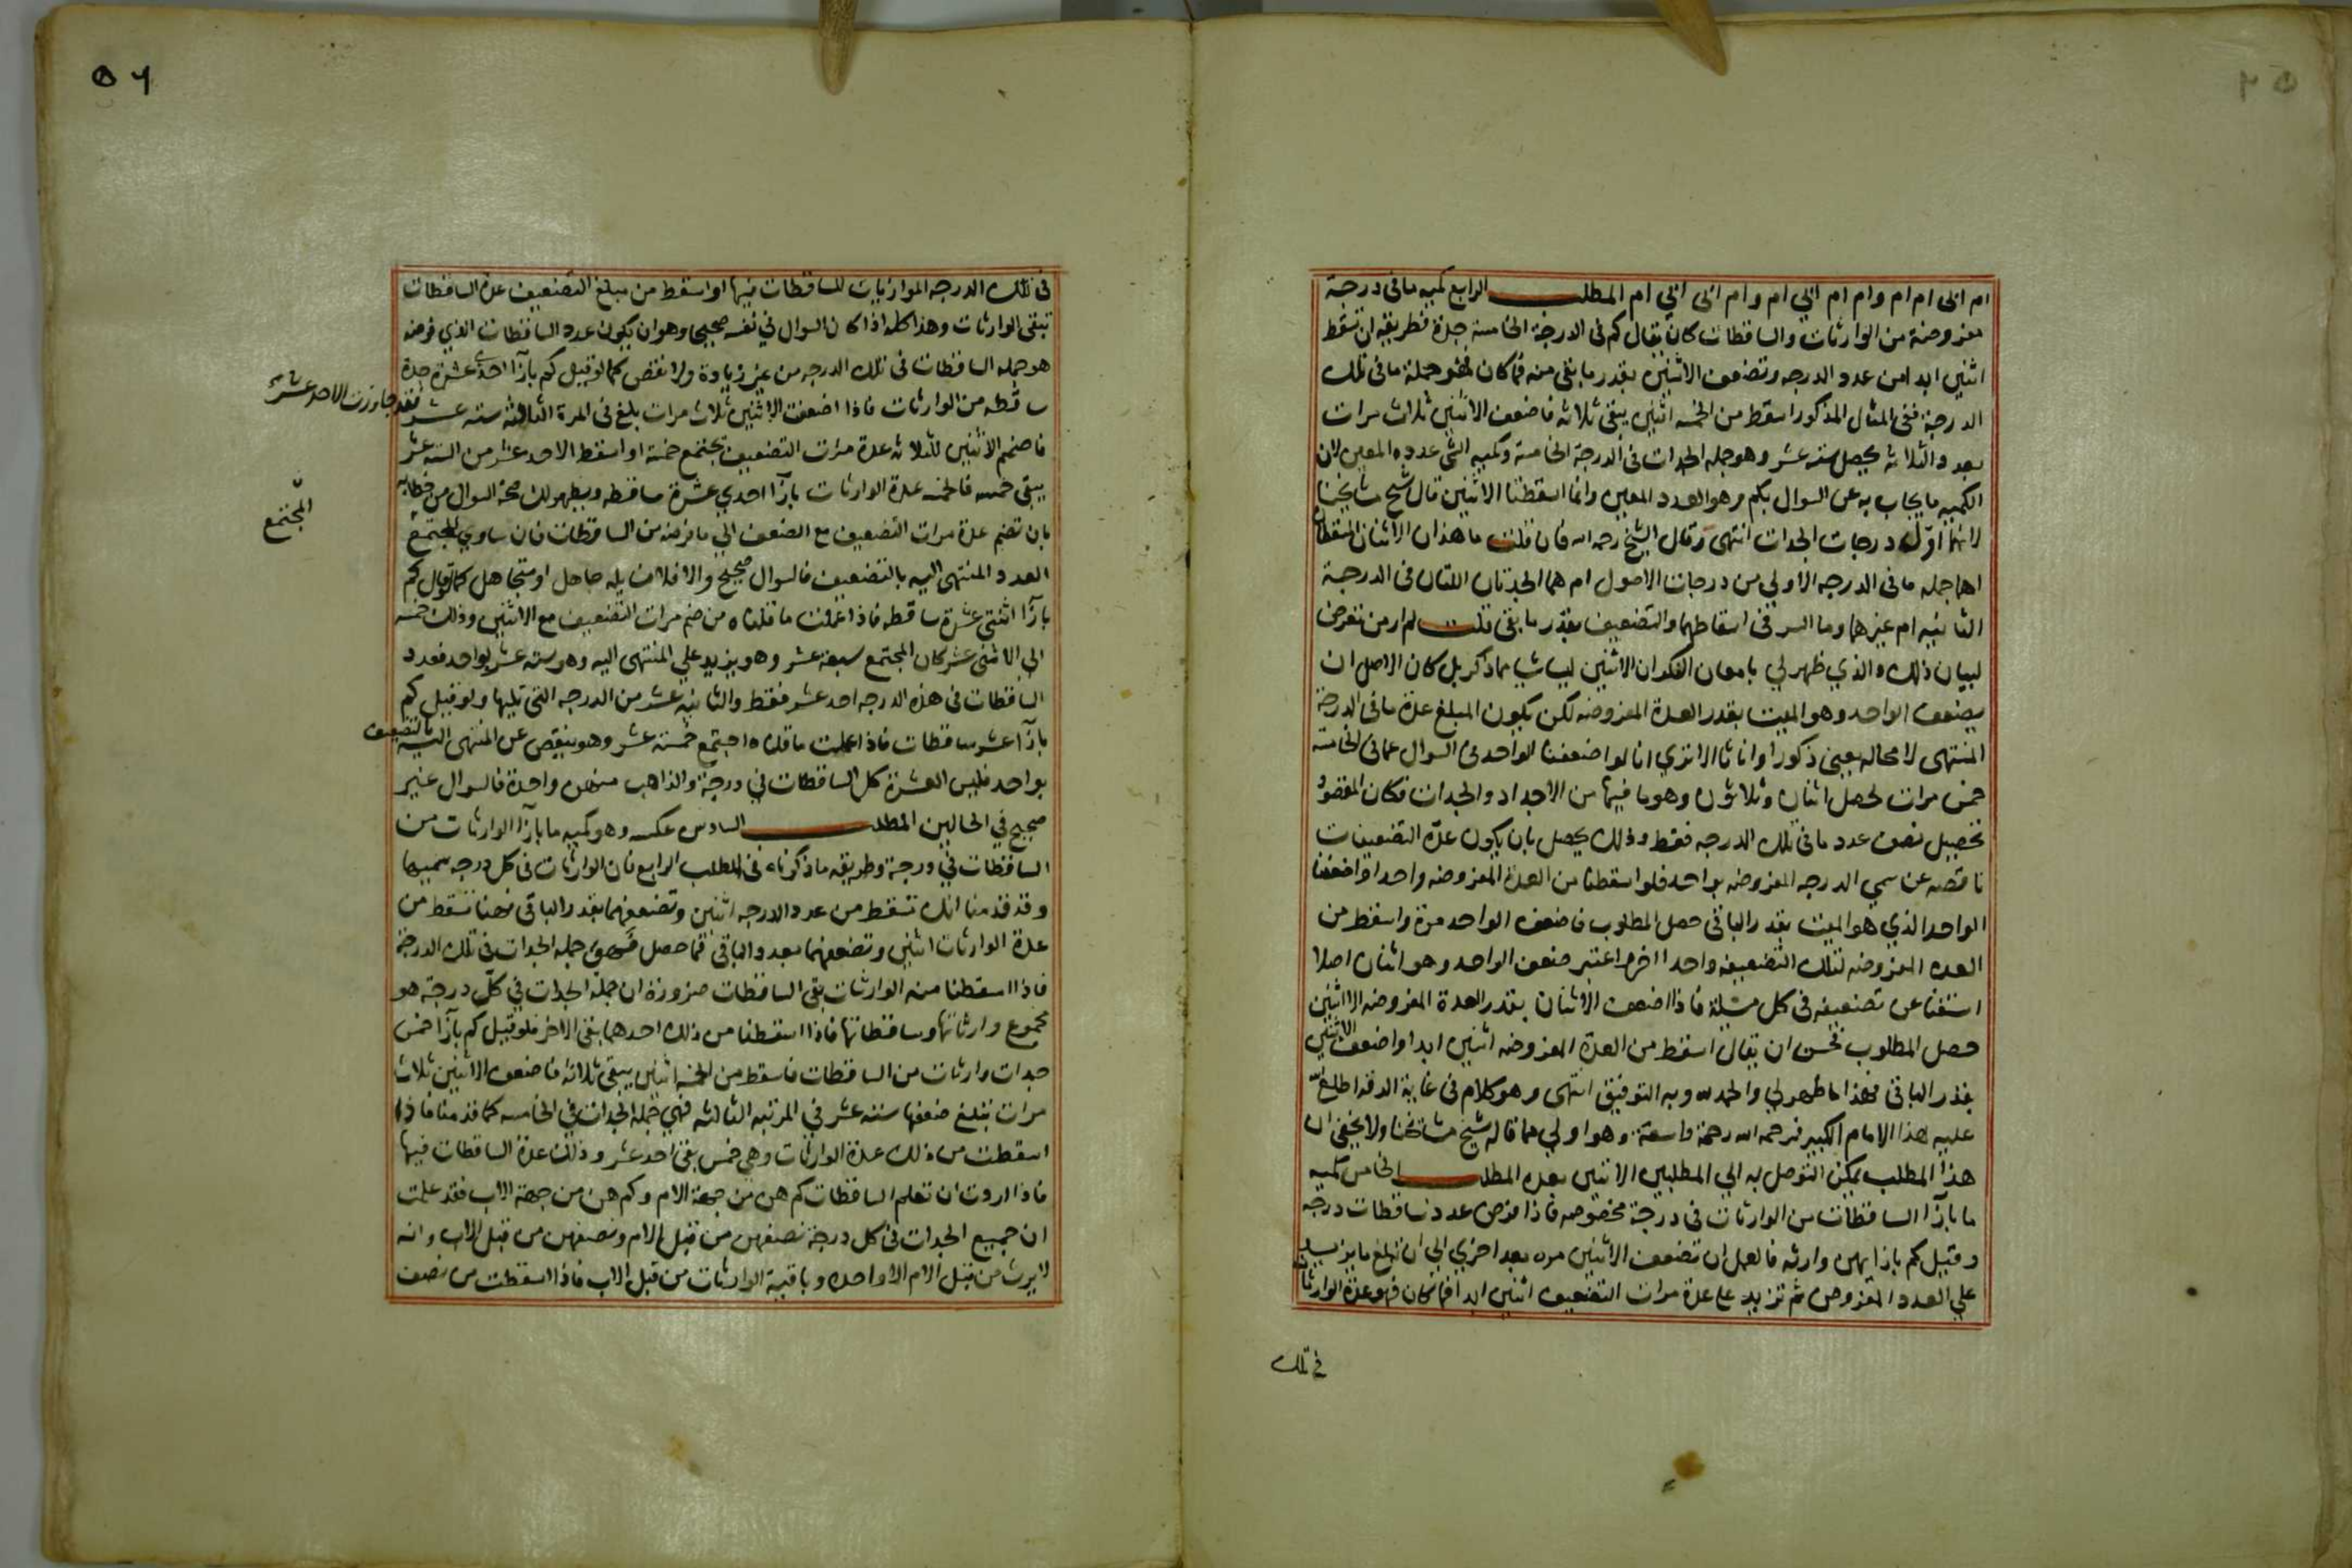 ام ابي ام ام وام ام ابي ام وام ابي ابي ام المطلب الرابع كميه ما في درجة
مفروضة من الوارثات والساقطات كان يقال كم في الدرجة الخامسة جدة فطريقه ان تسقط
اثنين ابدا من عدد الدرجه وتضعف الاثنين بقدر ما بقى منه فما كان فهو جملة ما في تلك
الدرجة ففي المثال المذكور اسقط من الخمسه اثنين يبقى ثلاثه فاضعف الاثنين ثلاث مرات
بعدد الثلاثه يحصل سته عشر وهو جمله الجدات في الدرجة الخامسة وكميه الشي عدده المعين لان
الكميه ما يجاب به عن السوال بكم وهو العدد المعين وانما اسقطنا الاثنين قال شيخ مشايخنا
لانهما اول درجات الجدات انتهى وقال الشيخ رحمه الله فان قلت ما هذان الاثنان المسقطان
اهما جمله ما في الدرجه الاولي من درجات الاصول ام هما الجدتان اللتان في الدرجة
الثانيه ام غيرهما وما السر في اسقاطهما والتضعيف بقدر ما بقي قلت لم ار من تعرض
لبيان ذلك والذي ظهر لي بامعان الفكر ان الاثنين ليسا شيا مما ذكر بل كان الاصل ان
يضعف الواحد وهو الميت بقدر العدة المفروضه لكن يكون المبلغ عدة ما في الدرجة
المنتهى لا محاله يعني ذكورا واناثا الا ترى انا لو اضعفنا الواحد في السوال عما في الخامسة
خمس مرات لحصل اثنان وثلاثون وهو ما فيها من الاجداد والجدات فكان المقصود
تحصيل نصف عدد ما في تلك الدرجه فقط وذلك يحصل بان يكون عدة التضعيفات
ناقصه عن سمي الدرجه المفروضه بواحد فلو اسقطنا من العدة المفروضه واحدا واضعفنا
الواحد الذي هو الميت بقدر الباقي حصل المطلوب فاضعف الواحد مرة واسقط من
العده المفروضه لتلك التضعيفه واحدا اخر اعتبر ضعف الواحد وهو اثنان اصلا
استغنا عن تضعيفه في كل مسئلة فاذا اضعف الاثنان بقدر العدة المفروضه الا اثنين
حصل المطلوب فحسن ان يقال اسقط من العدة المفروضه اثنين ابدا واضعف الاثنين
بقدر الباقي فهذا ما ظهر لي والحمد لله وبه التوفيق انتهى وهو كلام في غاية الدقه اطلع الله
عليه هذا الامام الكبير فرحمه الله رحمة واسعة وهو اولي مما قاله شيخ مشايخنا ولا يخفى ان
هذا المطلب يمكن التوصل به الي المطلبين الاتيين بعده المطلب الخامس كميه
ما بازا الساقطات من الوارثات في درجة مخصوصه فاذا فرض عدد ساقطات درجه
وقيل كم بازائهن وارثه فالعمل ان تضعف الاثنين مره بعد اخري الي ان تبلغ ما يزيد
علي العدد المفروض ثم تزيد علي عدة مرات التضعيف اثنين ابدا فما كان فهو عدة الوارثات
في تلك
٥٦
في تلك الدرجه الموازيات للساقطات فيها او اسقط من مبلغ التضعيف عدة الساقطات
تبقى الوارثات وهذا كله اذا كان السوال في نفسه صحيحا وهو ان يكون عدد الساقطات الذي فرضه
هو جمله الساقطات في تلك الدرجه من غير زيادة ولا نقص كما لو قيل كم بازا احدي عشرة جدة
ساقطه من الوارثات فاذا اضعفت الاثنين ثلاث مرات بلغ في المرة الثالثة سته عشر فقد جاوزت الاحد عشر
فاضمم الاثنين للثلاثه عدة مرات التضعيف يجتمع خمسة او اسقط الاحد عشر من السته عشر
يبقى خمسه فالخمسه عدة الوارثات بازا احدي عشرة ساقطه ويظهر لك صحة السوال من خطابه
بان تضم عدة مرات التضعيف مع الضعف الي ما فرضه من الساقطات فان ساوي المجتمع
المجتمع
العدد المنتهى اليه بالتضعيف فالسوال صحيح والا فلا فسايله جاهل او متجاهل كما لو قال كم
بازا اثنتي عشرة ساقطه فاذا عملت ما قلناه من ضم مرات التضعيف مع الاثنين وذلك خمسه
الي الاثني عشر كان المجتمع سبعة عشر وهو يزيد علي المنتهى اليه وهو سته عشر بواحد فعدد
الساقطات في هذه الدرجه احد عشر فقط والثانيه عشر من الدرجه التي تليها ولو قيل كم
بازا عشر ساقطات فاذا عملت ما قلناه اجتمع خمسة عشر وهو ينقص عن المنتهى اليه بالتضعيف
بواحد فليس العشرة كل الساقطات في درجة والذاهب منهن واحدة فالسوال غير
صحيح في الحالين المطلب السادس عكسه وهو كميه ما بازا الوارثات من
الساقطات في درجة وطريقه ما ذكرناه في المطلب الرابع فان الوارثات في كل درجه سميها
وقد قدمنا انك تسقط من عدد الدرجه اثنين وتضعفهما بقدر الباقي فهنا تسقط من
عدة الوارثات اثنين وتضعفهما بعدد الباقي فما حصل فهو جمله الجدات في تلك الدرجة
فاذا اسقطنا منه الوارثات بقي الساقطات ضرورة ان جملة الجدات في كل درجة هو
مجموع وارثاتها وساقطاتها فاذا اسقطنا من ذلك احدهما بقي الاخر فلو قيل كم بازا خمس
جدات وارثات من الساقطات فاسقط من الخمسه اثنين يبقى ثلاثه فاضعف الاثنين ثلاث
مرات تبلغ ضعفها سته عشر في المرتبه الثالثه فهي جملة الجدات في الخامسه كما قدمنا فاذا
اسقطت من ذلك عدة الوارثات وهي خمس بقي احد عشر وذلك عدة الساقطات فيها
فاذا اردت ان تعلم الساقطات كم هن من جهة الام وكم هن من جهة الاب فقد علمت
ان جميع الجدات في كل درجة نصفهن من قبل الام ونصفهن من قبل الاب وانه
لا يرث من قبل الام الا واحده وباقية الوارثات من قبل الاب فاذا اسقطت من نصف